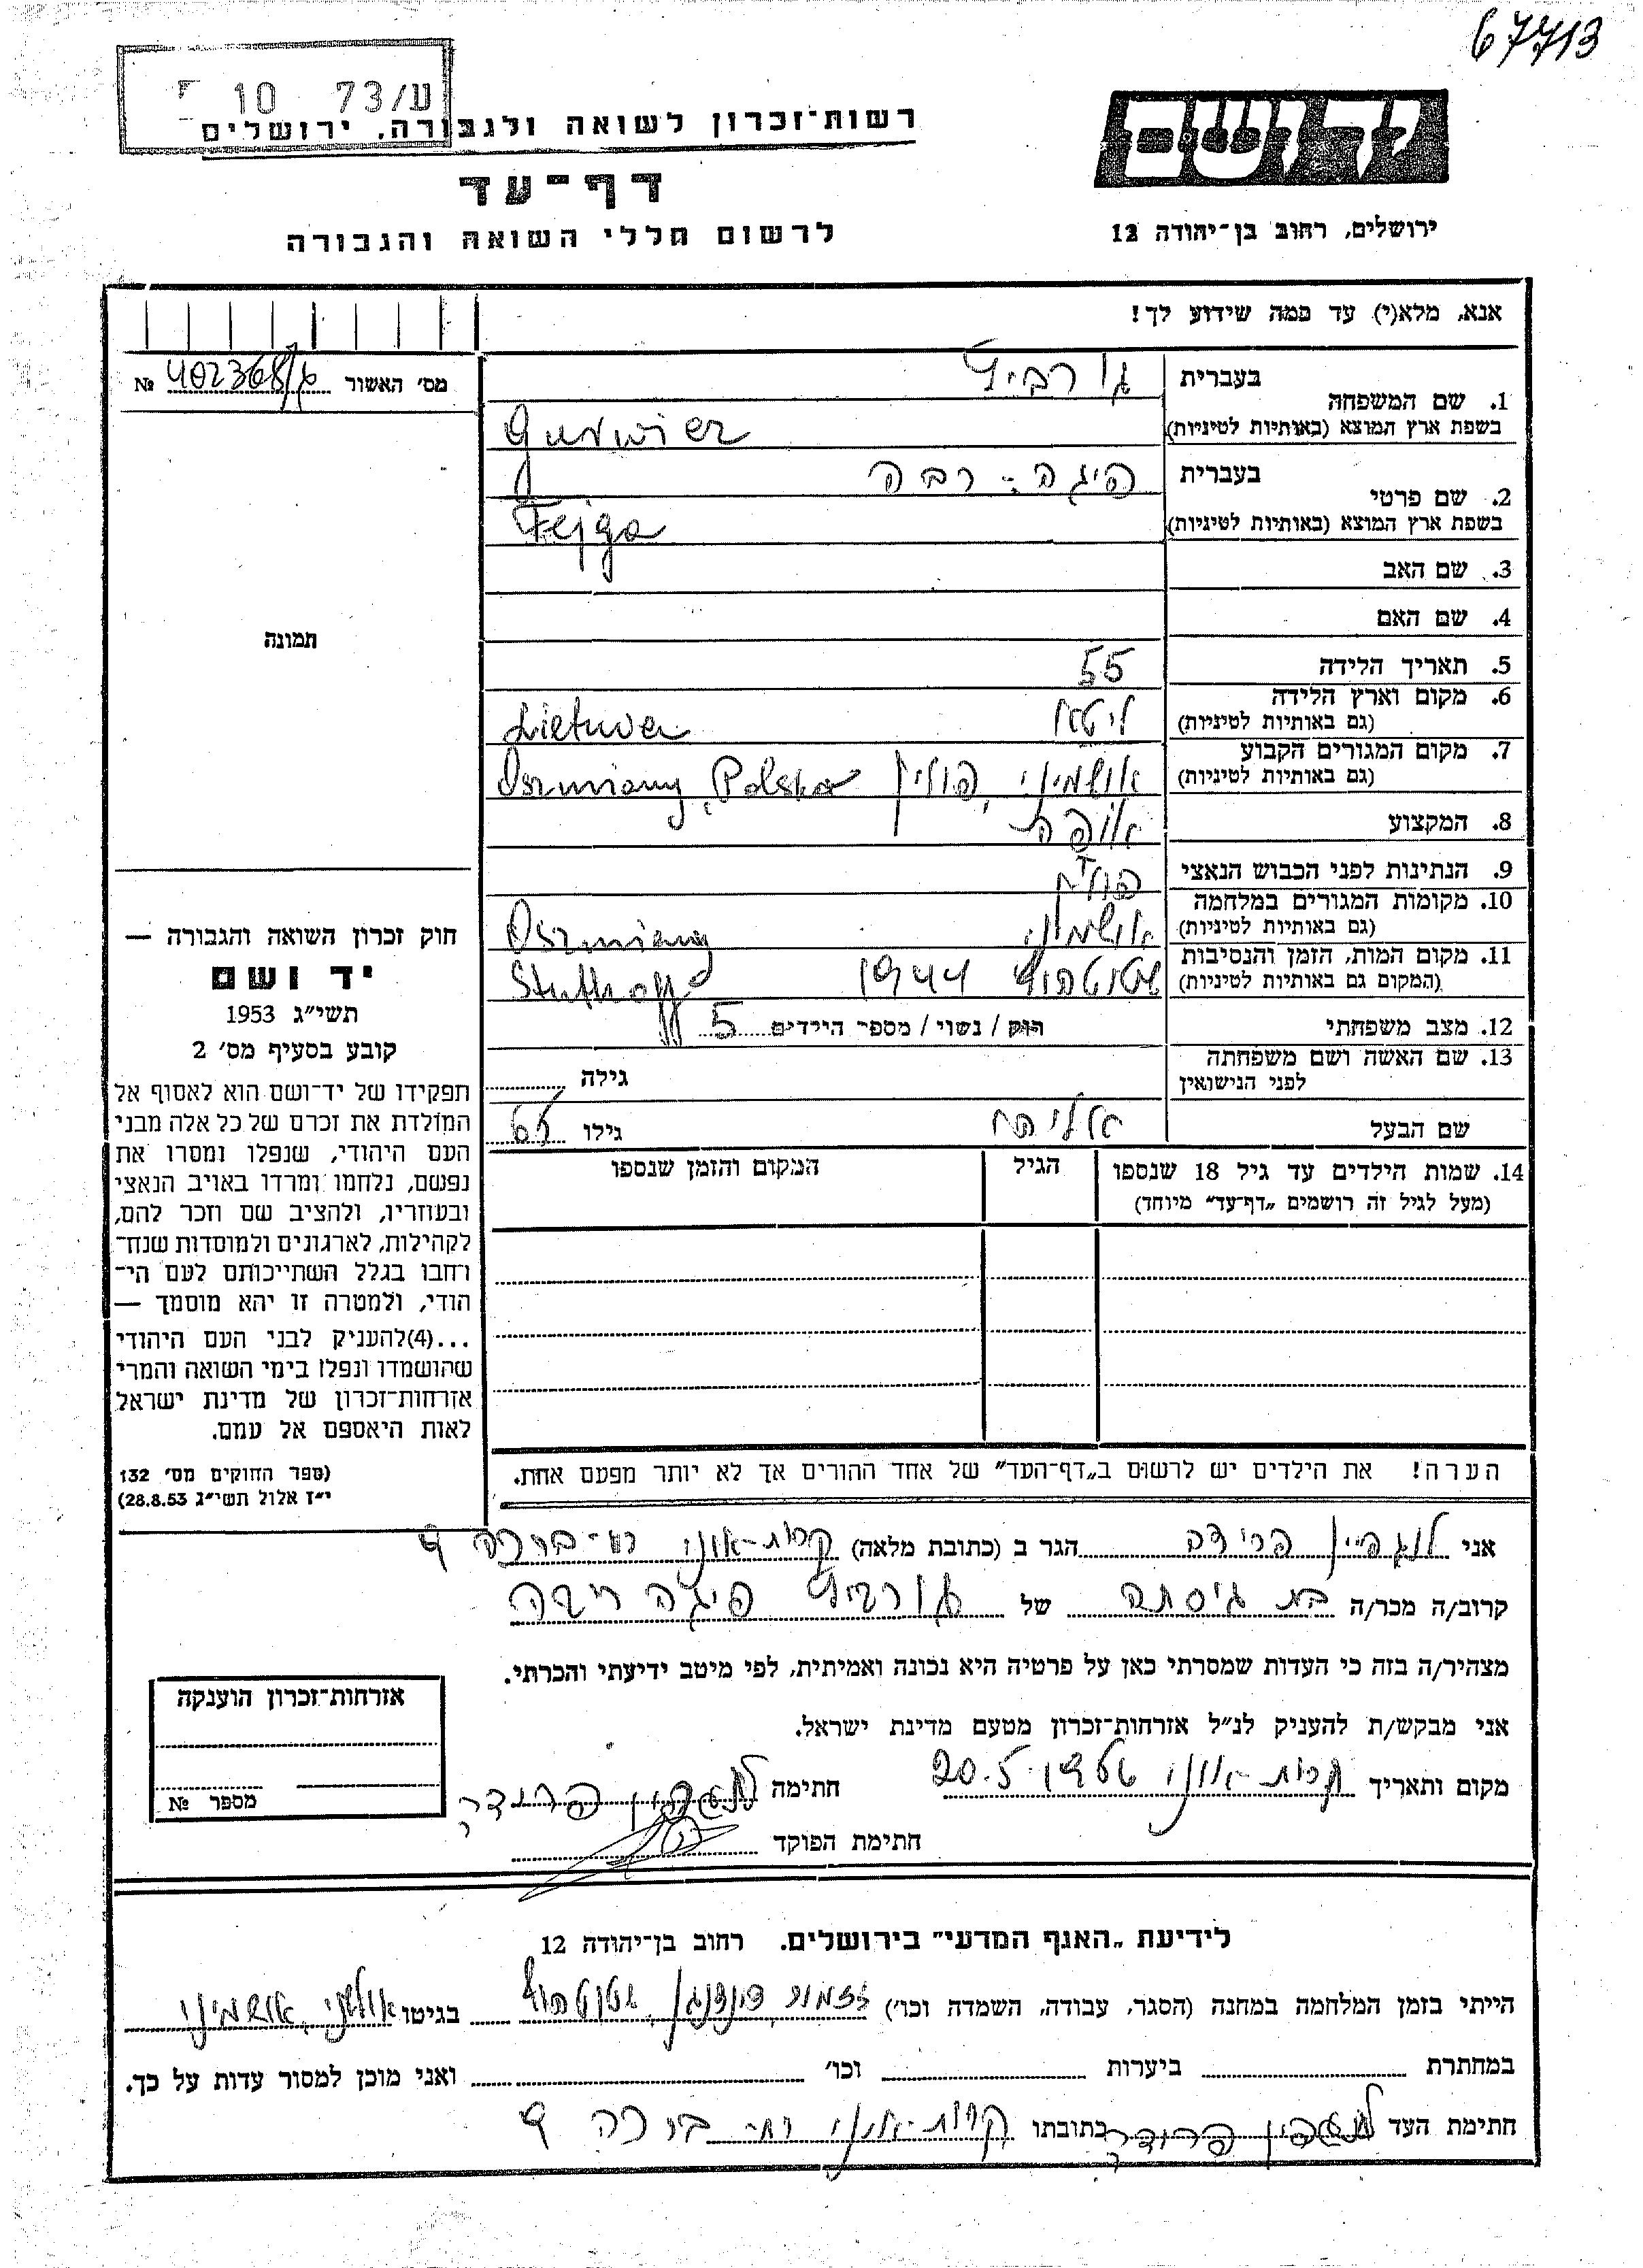 67713
ע/73 10
ידושם
רשות־זכרון לשואה ולגבורה, ירושלים
דף־עד
לרשום חללי השואה והגבורה
ירושלים, רחוב בן־יהודה 12
אנא, מלא(י) עד כמה שידוע לך!
מס׳ האשור № 402368/
1. שם המשפחה בעברית
בשפת ארץ המוצא (באותיות לטיניות)
2. שם פרטי בעברית פיגה - רבה
בשפת ארץ המוצא (באותיות לטיניות) Fejga
3. שם האב
4. שם האם
תמונה
5. תאריך הלידה 55
6. מקום וארץ הלידה
(גם באותיות לטיניות) ליטא Lietuva
7. מקום המגורים הקבוע
(גם באותיות לטיניות) אושמיני, פולין Oszmiany, Polska
8. המקצוע אופה
9. הנתינות לפני הכבוש הנאצי
10. מקומות המגורים במלחמה
(גם באותיות לטיניות) אושמיני Oszmiany
11. מקום המות, הזמן והנסיבות
(המקום גם באותיות לטיניות) שטוטהוף 1944 Stuthoff
12. מצב משפחתי רוק / נשוי / מספר הילדים 5
13. שם האשה ושם משפחתה
לפני הנישואין גילה
שם הבעל גילו 65
14. שמות הילדים עד גיל 18 שנספו הגיל המקום והזמן שנספו
(מעל לגיל זה רושמים „דף־עד״ מיוחד)
חוק זכרון השואה והגבורה —
יד ושם
תשי״ג 1953
קובע בסעיף מס׳ 2
תפקידו של יד־ושם הוא לאסוף אל
המולדת את זכרם של כל אלה מבני
העם היהודי, שנפלו ומסרו את
נפשם, נלחמו ומרדו באויב הנאצי
ובעוזריו, ולהציב שם וזכר להם,
לקהילות, לארגונים ולמוסדות שנח־
רחבו בגלל השתייכותם לעם הי־
הודי, ולמטרה זו יהא מוסמך —
...(4)להעניק לבני העם היהודי
שהושמדו ונפלו בימי השואה והמרי
אזרחות־זכרון של מדינת ישראל
לאות היאספם אל עמם.
(ספר החוקים מס׳ 132
י״ז אלול תשי״ג 28.8.53)
הערה! את הילדים יש לרשום ב„דף־העד״ של אחד ההורים אך לא יותר מפעם אחת.
אני לנגביין פרידה הגר ב (כתובת מלאה) קרית-אונו רח-
קרוב/ה מכר/ה בת גיסתה של גורביץ פיגה ריבה
מצהיר/ה בזה כי העדות שמסרתי כאן על פרטיה היא נכונה ואמיתית, לפי מיטב ידיעתי והכרתי.
אני מבקש/ת להעניק לנ״ל אזרחות־זכרון מטעם מדינת ישראל.
מקום ותאריך קרית-אונו 20.5. חתימה
חתימת הפוקד
אזרחות־זכרון הוענקה
מספר №
לידיעת „האגף המדעי״ בירושלים. רחוב בן־יהודה 12
הייתי בזמן המלחמה במחנה (הסגר, עבודה, השמדה וכו׳) שטוטהוף בגיטו אושמיני
במחתרת ביערות וכו׳ ואני מוכן למסור עדות על כך.
חתימת העד כתובתו קרית-אונו רח-